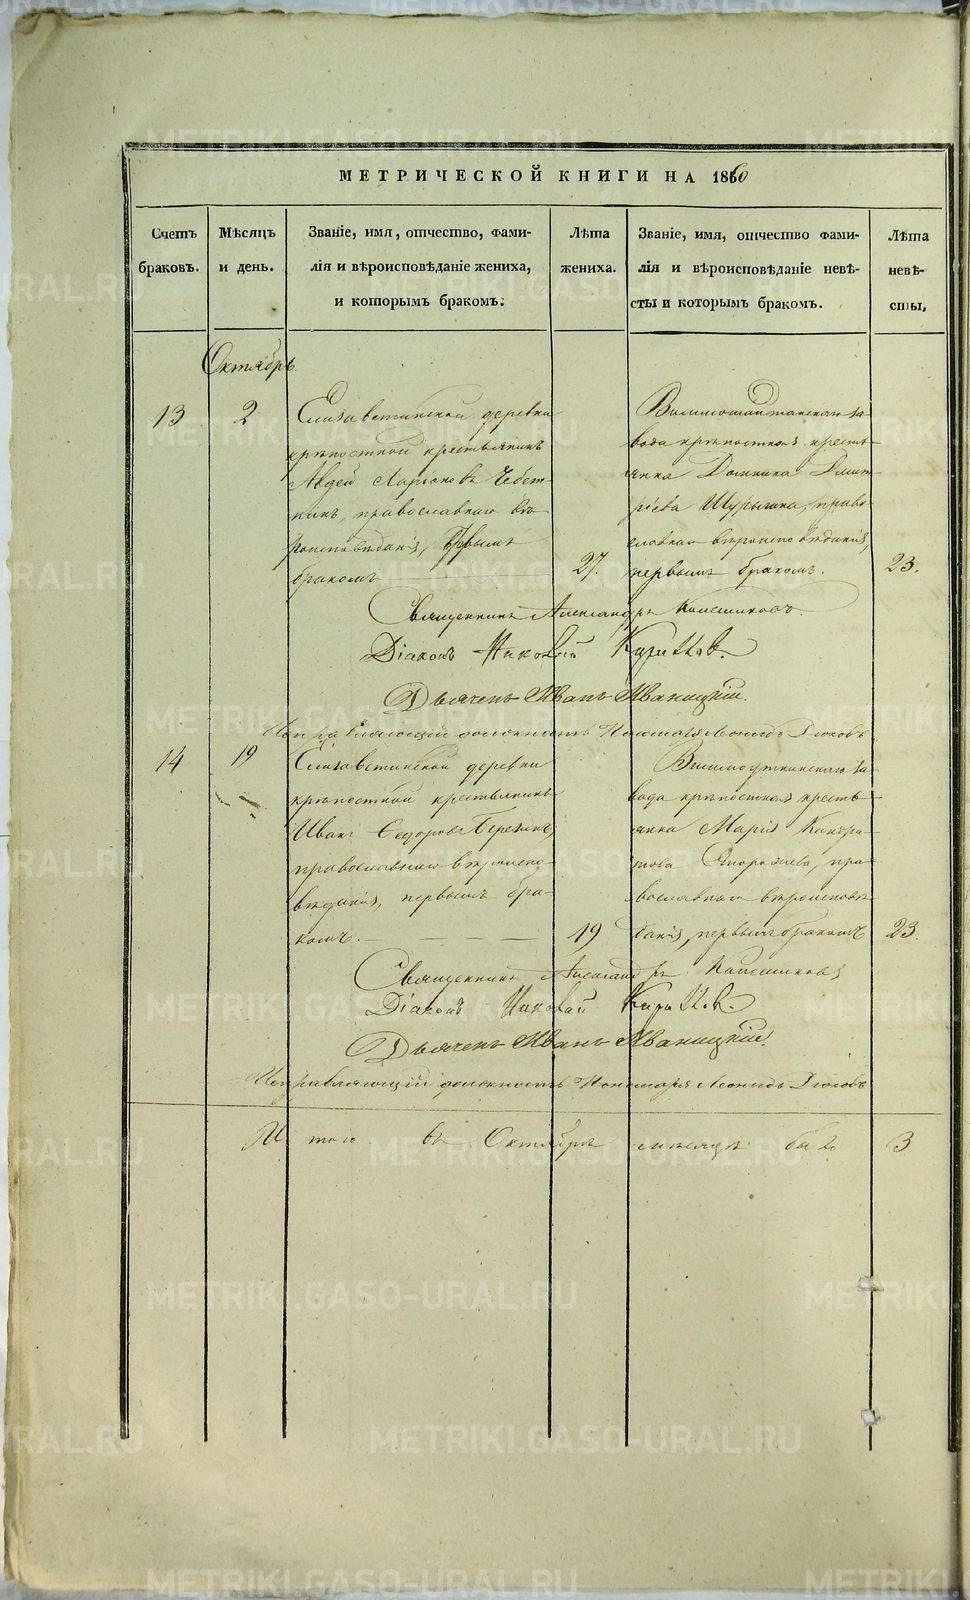 МЕТРИЧЕСКОЙ КНИГИ НА 1860
Счетъ
браковъ.
Мѣсяцъ
и день.
Званіе, имя, отчество, фами-
лія и вѣроисповѣданіе жениха,
и которымъ бракомъ.
Лѣта
жениха.
Званіе, имя, отчество фами-
лія и вѣроисповѣданіе невѣ-
сты и которымъ бракомъ.
Лѣта
невѣ-
сты.
Октябрь
13
2
Елизаветинской деревни
крѣпостной крестьянинъ
Авдей Ларіоновъ
православнаго вѣ
роисповѣданія, первымъ
бракомъ
27.
за
вода крѣпостная кресть
янка Домника Дмит
ріева Шурыгина, право
славнаго вѣроисповѣданія,
первымъ бракомъ.
23.
Священникъ Александръ
Діаконъ Николай
Дьячекъ Иванъ Иваницкій.
Исправляющій должность Пономаря Леонидъ
14
19
Елизаветинской деревни
крѣпостной крестьянинъ
Иванъ Ѳедоровъ Березинъ,
православнаго вѣроиспо-
вѣданія, первымъ бра-
комъ.
19
Висимоуткинскаго за-
вода крѣпостная кресть
янка Марія Кондра-
това православнаго вѣроисповѣ
данія, первымъ бракомъ
23
Священникъ Александръ
Діаконъ Николай
Дьячекъ Иванъ Иваницкій.
Исправляющій должность Пономаря Леонидъ
Итого въ Октябрѣ мѣсяцѣ бы 3